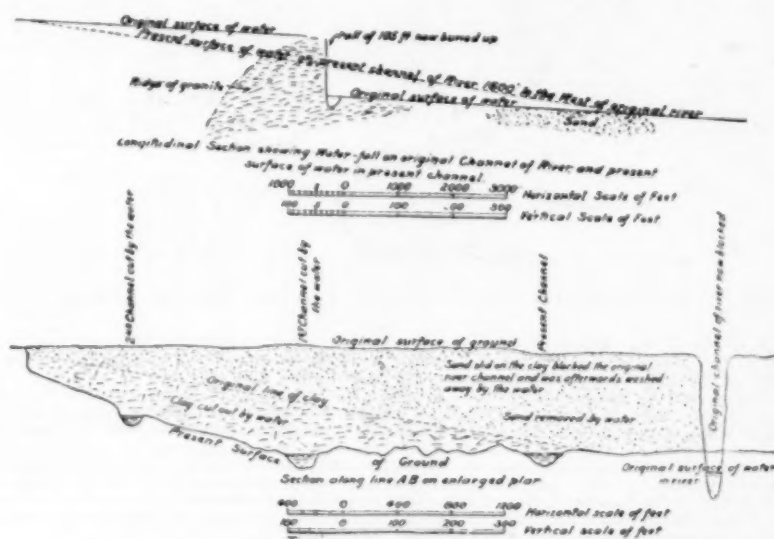 Original surface of water
Fall of 105 ft now burred up
Present surface of water in present channel of River 1600' to the West of original river
Ridge of granite
Original surface of water
Sand
Longitudinal Section showing Water-fall on original Channel of River, and present
Surface of water in present channel.
1000 0 1000 2000 3000
Horizontal Scale of Feet
100 0 100 200 300
Vertical Scale of Feet
2nd Channel cut by the water
1st Channel cut by
the water
Present Channel
Original channel of river now blocked
Original surface of ground
Sand slid on the clay blocked the original
river channel and was afterwards washed
away by the water
Original line of clay
Clay cut out by water
Sand removed by water
Present Surface
of Ground
Original surface of water
in river
Section along line A.B on enlarged plan
400 0 400 800 1200
Horizontal scale of feet
100 0 100 200 300
Vertical scale of feet